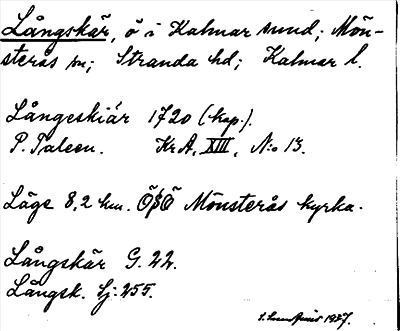 Långskär, ö i Kalmar sund; Mön-
sterås sn; Stranda hd; Kalmar l.
Långeskiär 1720 (kop.).
P. Paleen. Kr A, XIII, N:o 13.
Läge 8,2 km. ÖSÖ Mönsterås kyrka.
Långskär G. 22.
Långsk. Sj: 255.
1927.